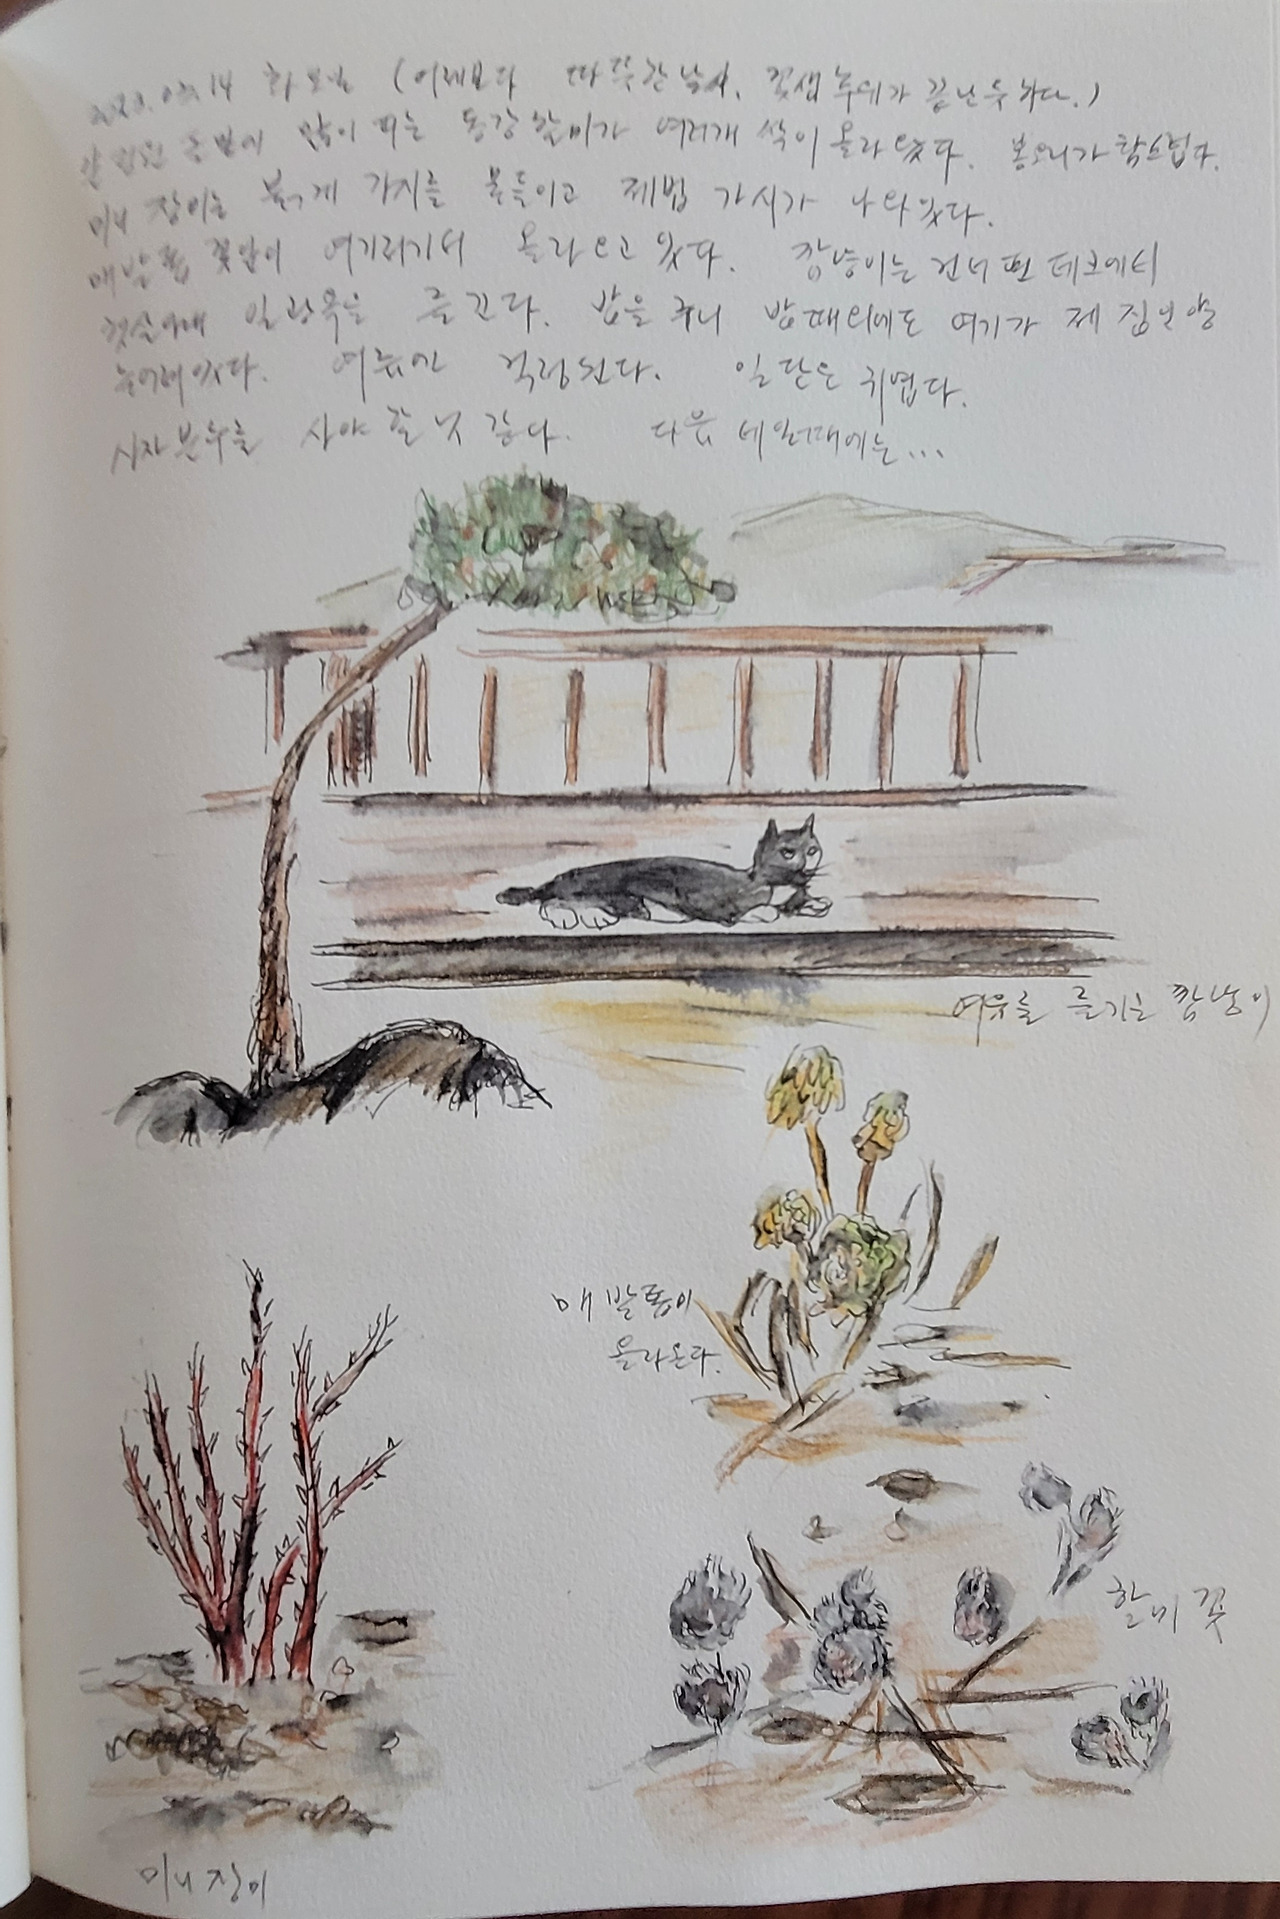 03.14 화요일 (어제보다 따뜻한 날씨. 꽃샘 추위가 끝난 듯 하다.)
많이 피는 동강할미가 여러개 싹이 올라왔다. 봉오리가 탐스럽다.
미니 장미는 붉게 가지를 물들이고 제법 가시가 나와있다.
매발톱 꽃잎이 여기저기서 올라오고 있다. 깜냥이는 건너편 데크에서
햇살아래 일광욕을 즐긴다. 밥을 주니 밥때외에도 여기가 제 집인양
누워있다. 걱정된다. 일단은 귀엽다.
사야 할 것 같다. 다음 세일때에는...
여유를 즐기는 깜냥이
매발톱이
올라온다.
할미꽃
미니 장미